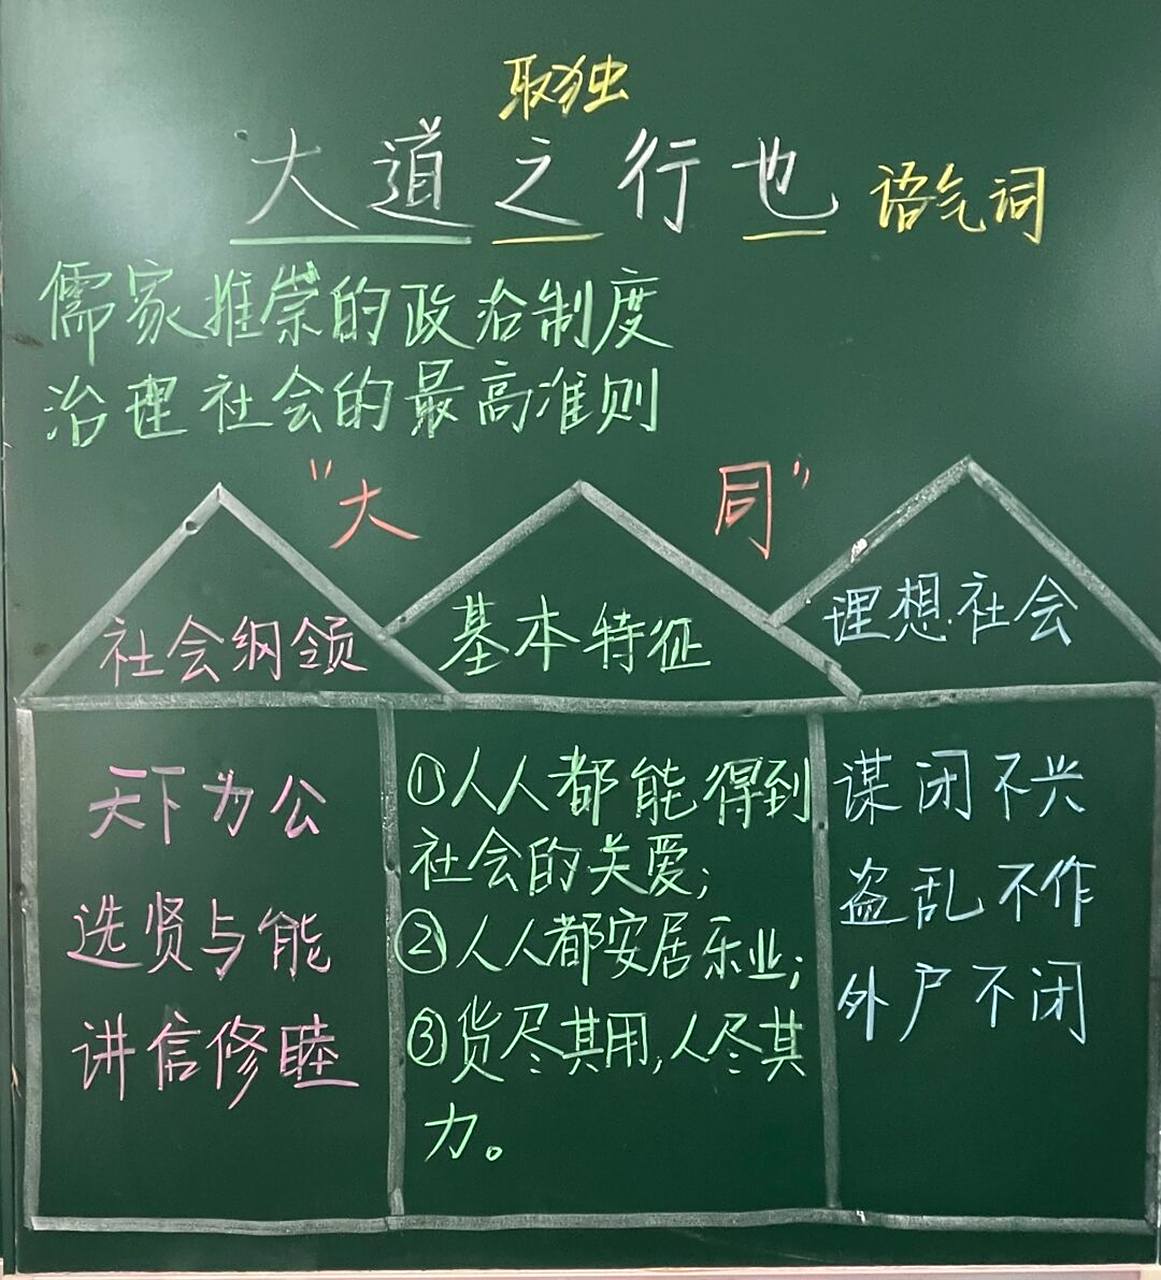 取独
大道之行也 语气词
儒家推崇的政治制度
治理社会的最高准则
“大同”
社会纲领
天下为公
选贤与能
讲信修睦
基本特征
①人人都能得到
社会的关爱;
②人人都安居乐业;
③货尽其用,人尽其
力。
理想社会
谋闭不兴
盗乱不作
外户不闭